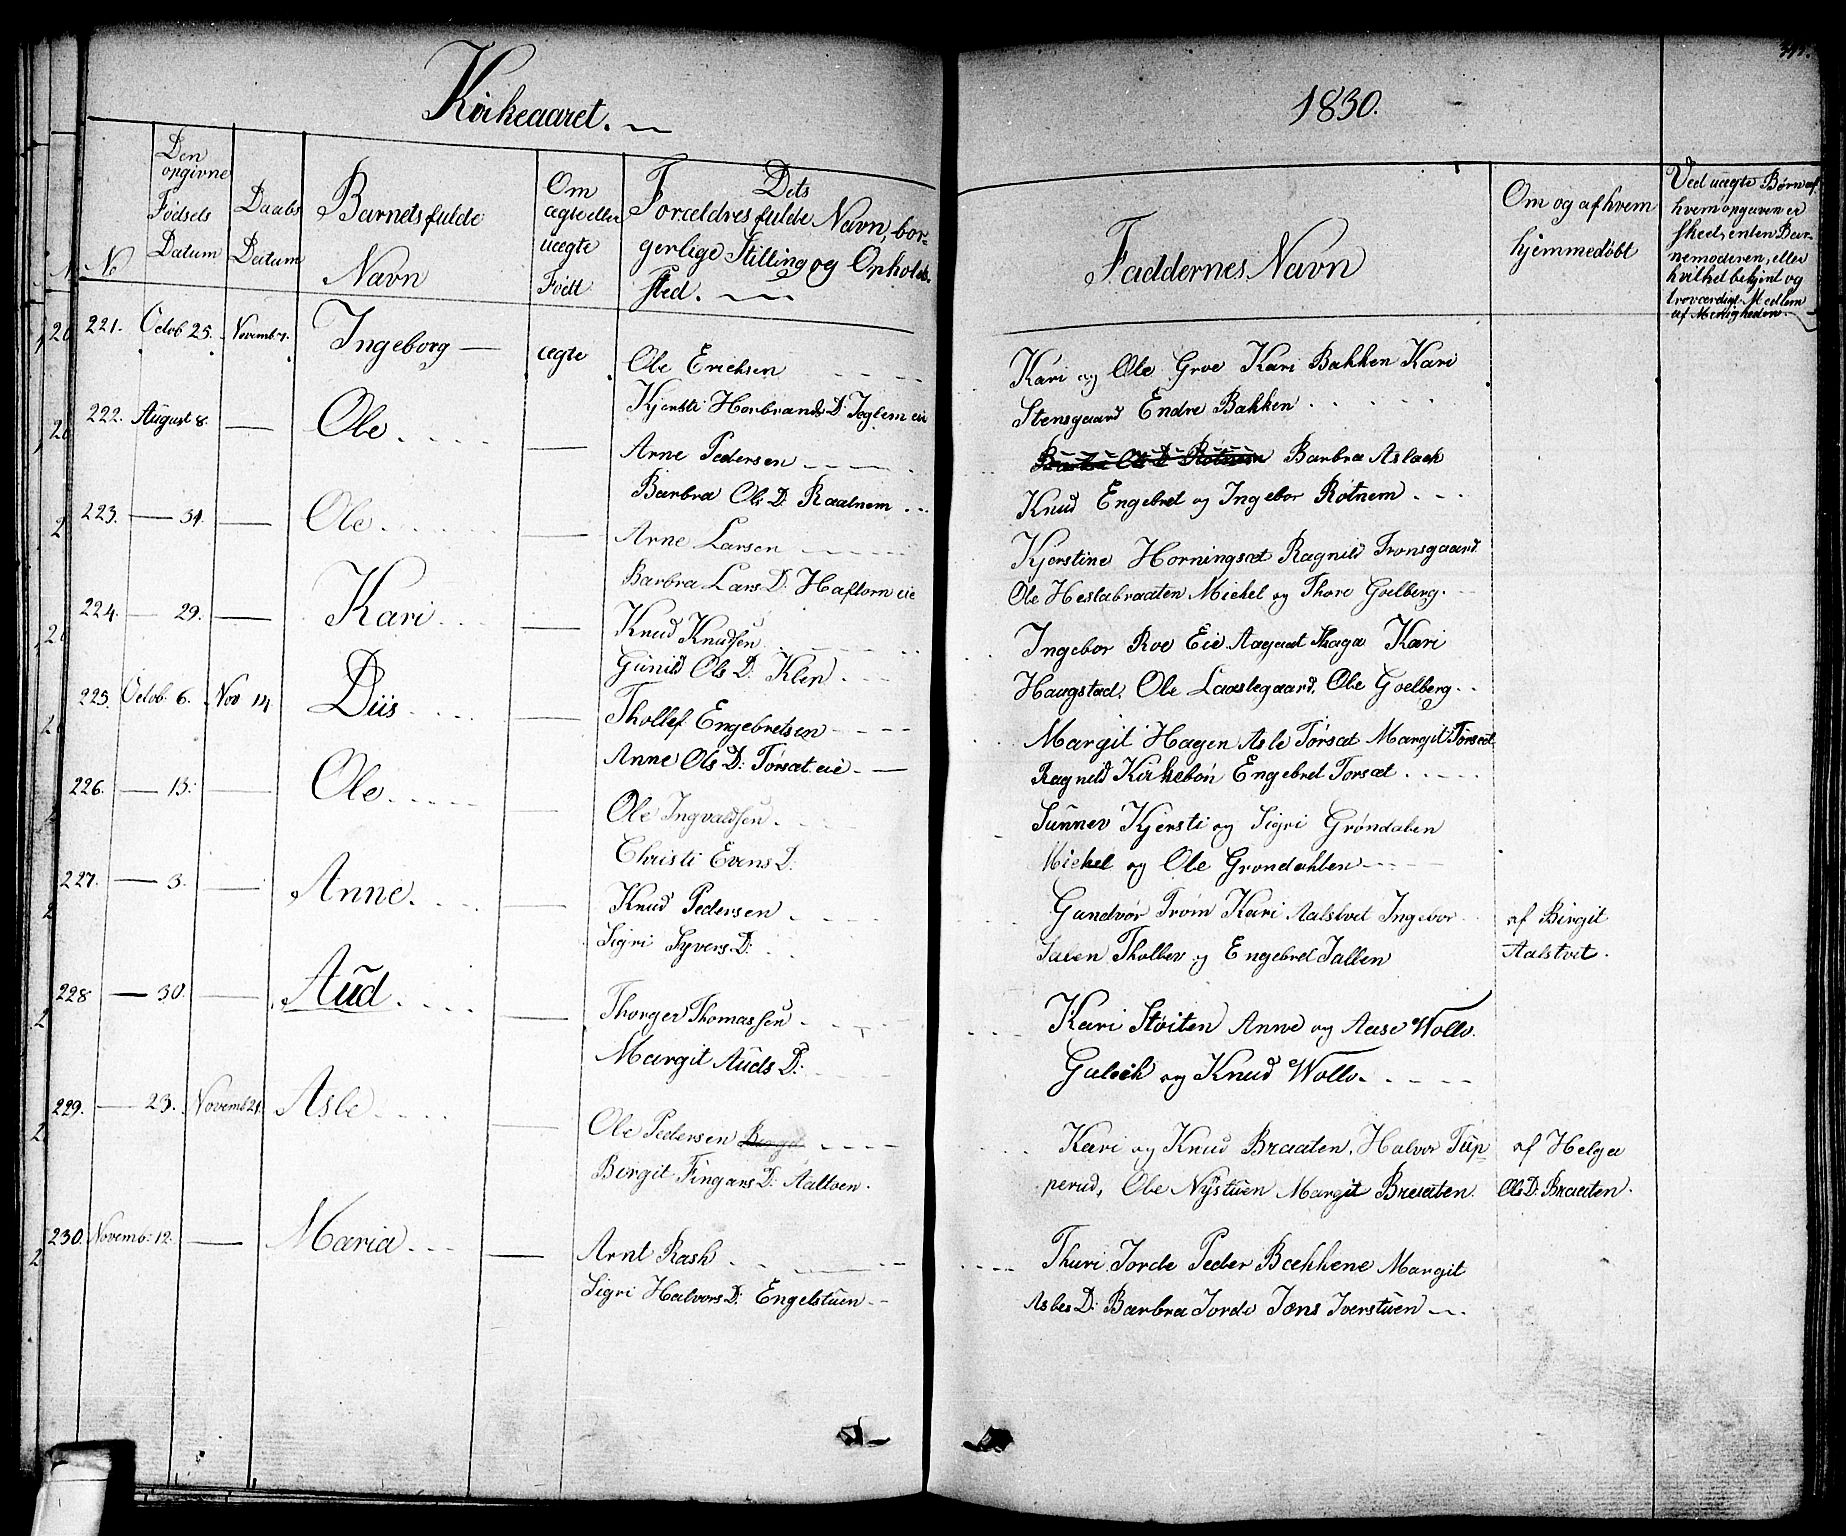 Kirkeaaret.
1830.
No
Den opgivne Fødsels Datum
Daabs Datum
Barnets fulde Navn
Om ægte eller uægte Født
Dets Forældres fulde Navn, borgerlige Stilling og Opholdssted.
Faddernes Navn
Om og af hvem hjemmedøbt
Ved uægte Børn af hvem opgaven er sked, enten Barnemoderen, eller hvilket bekjent og troværdigt Medlem af Menigheden.
221. Octob 25. Novemb 7. Ingeborg — ægte Ole Erichsen
Kjersti Horbrands D. Toglem eie
Kari og Ole Groe Kari Bakken Kari
Stensgaard Endre Bakken
222. August 8. — Ole. — Arne Pedersen
Barbra Ols D: Raatnem
Barbra Aslack
Knud Engebret og Ingebor Rotnem
223. — 31. — Ole. — Arne Larsen
Barbra Lars D: Haftorn eie
Kjerstine Horningsæt Ragnild Tronsgaard
Ole Heslabraaten Mickel og Thore Goelberg.
224. — 29. — Kari. — Knud Knudsen
Gunild Ols D: Klep.
Ingebor Roe Eie Aagaat Haga Kari
Haugstad. Ole Laaslegaard. Ole Goelberg.
225. Octob. 6. Nov 14 Diis. — Thollef Engebretsen
Anne Ols D: Torsæt eie. —
Margit Hagen Asle Torsæt Margit Torsæt
Ragnild Kirkebøn Engebret Torsæt
226. — 13. — Ole. — Ole Ingvaldsen.
Christi Evens D.
Sunnev Kjersti og Sigri Grøndalen
Mickel og Ole Grondahlen
227. — 3. — Anne. — Knud Pedersen
Sigri Syvers D:
Gundvor Trøim Kari Aalstvet Ingebor
Jalen Thollev og Engebret Jallen
af Birgit
Aalstvet.
228 — 30. — Aud. — Thorger Thomassen.
Margit Auds D:
Kari Støiten Anne og Aase Wollo.
Guleik og Knud Wollo.
229. — 23. Novemb 21. Asle — Ole Pedersen
Birgit Fingars D: Aaltoen.
Kari og Knud Braaten. Halvor Tup-
perud, Ole Nystuen Margit Braaten.
af Helga
Ols D: Braaten.
230. Novemb: 12. — Maria. — Arnt Rask
Sigri Halvors D: Engelstuen.
Thuri Jorde Peder Bækkene Margit
Asles D: Barbra Jorde Jens Iverstuen